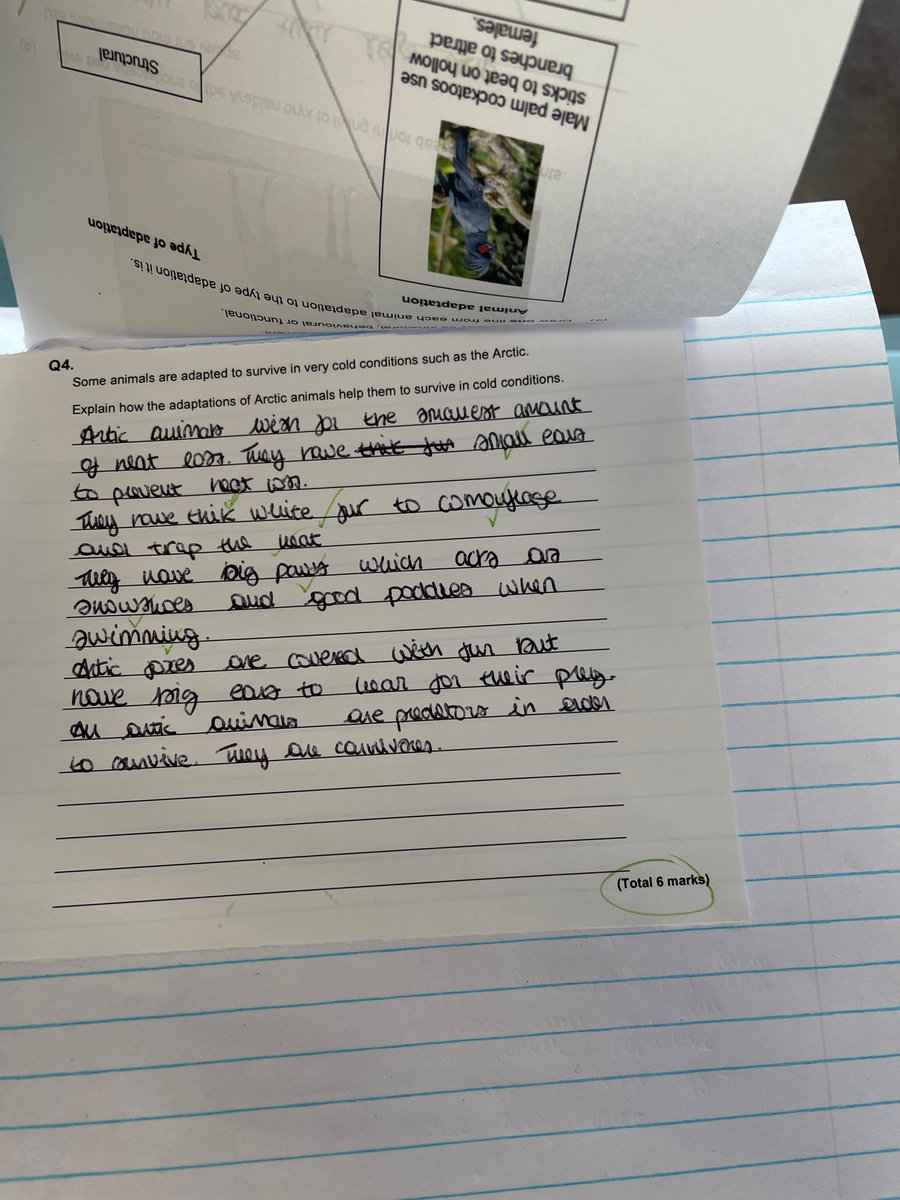 Structural
Male palm cockatoos use
sticks to beat on hollow
branches to attract
females.
Type of adaptation
Animal adaptation
type of adaptation it is.
Draw one line from each animal adaptation to the
structural, behavioural or functional.
Q4.
Some animals are adapted to survive in very cold conditions such as the Arctic.
Explain how the adaptations of Arctic animals help them to survive in cold conditions.
Artic animals wish for the smallest amount
of heat loss. They have thik fur small ears
to prevent heat loss.
They have thik white fur to comouflage
and trap the heat
They have big paws which acts as
snowshoes and good paddles when
swimming.
Artic foxes are covered with fur but
have big ears to hear for their prey.
All artic animals are predetors in order
to survive. They are carnivores.
(Total 6 marks)